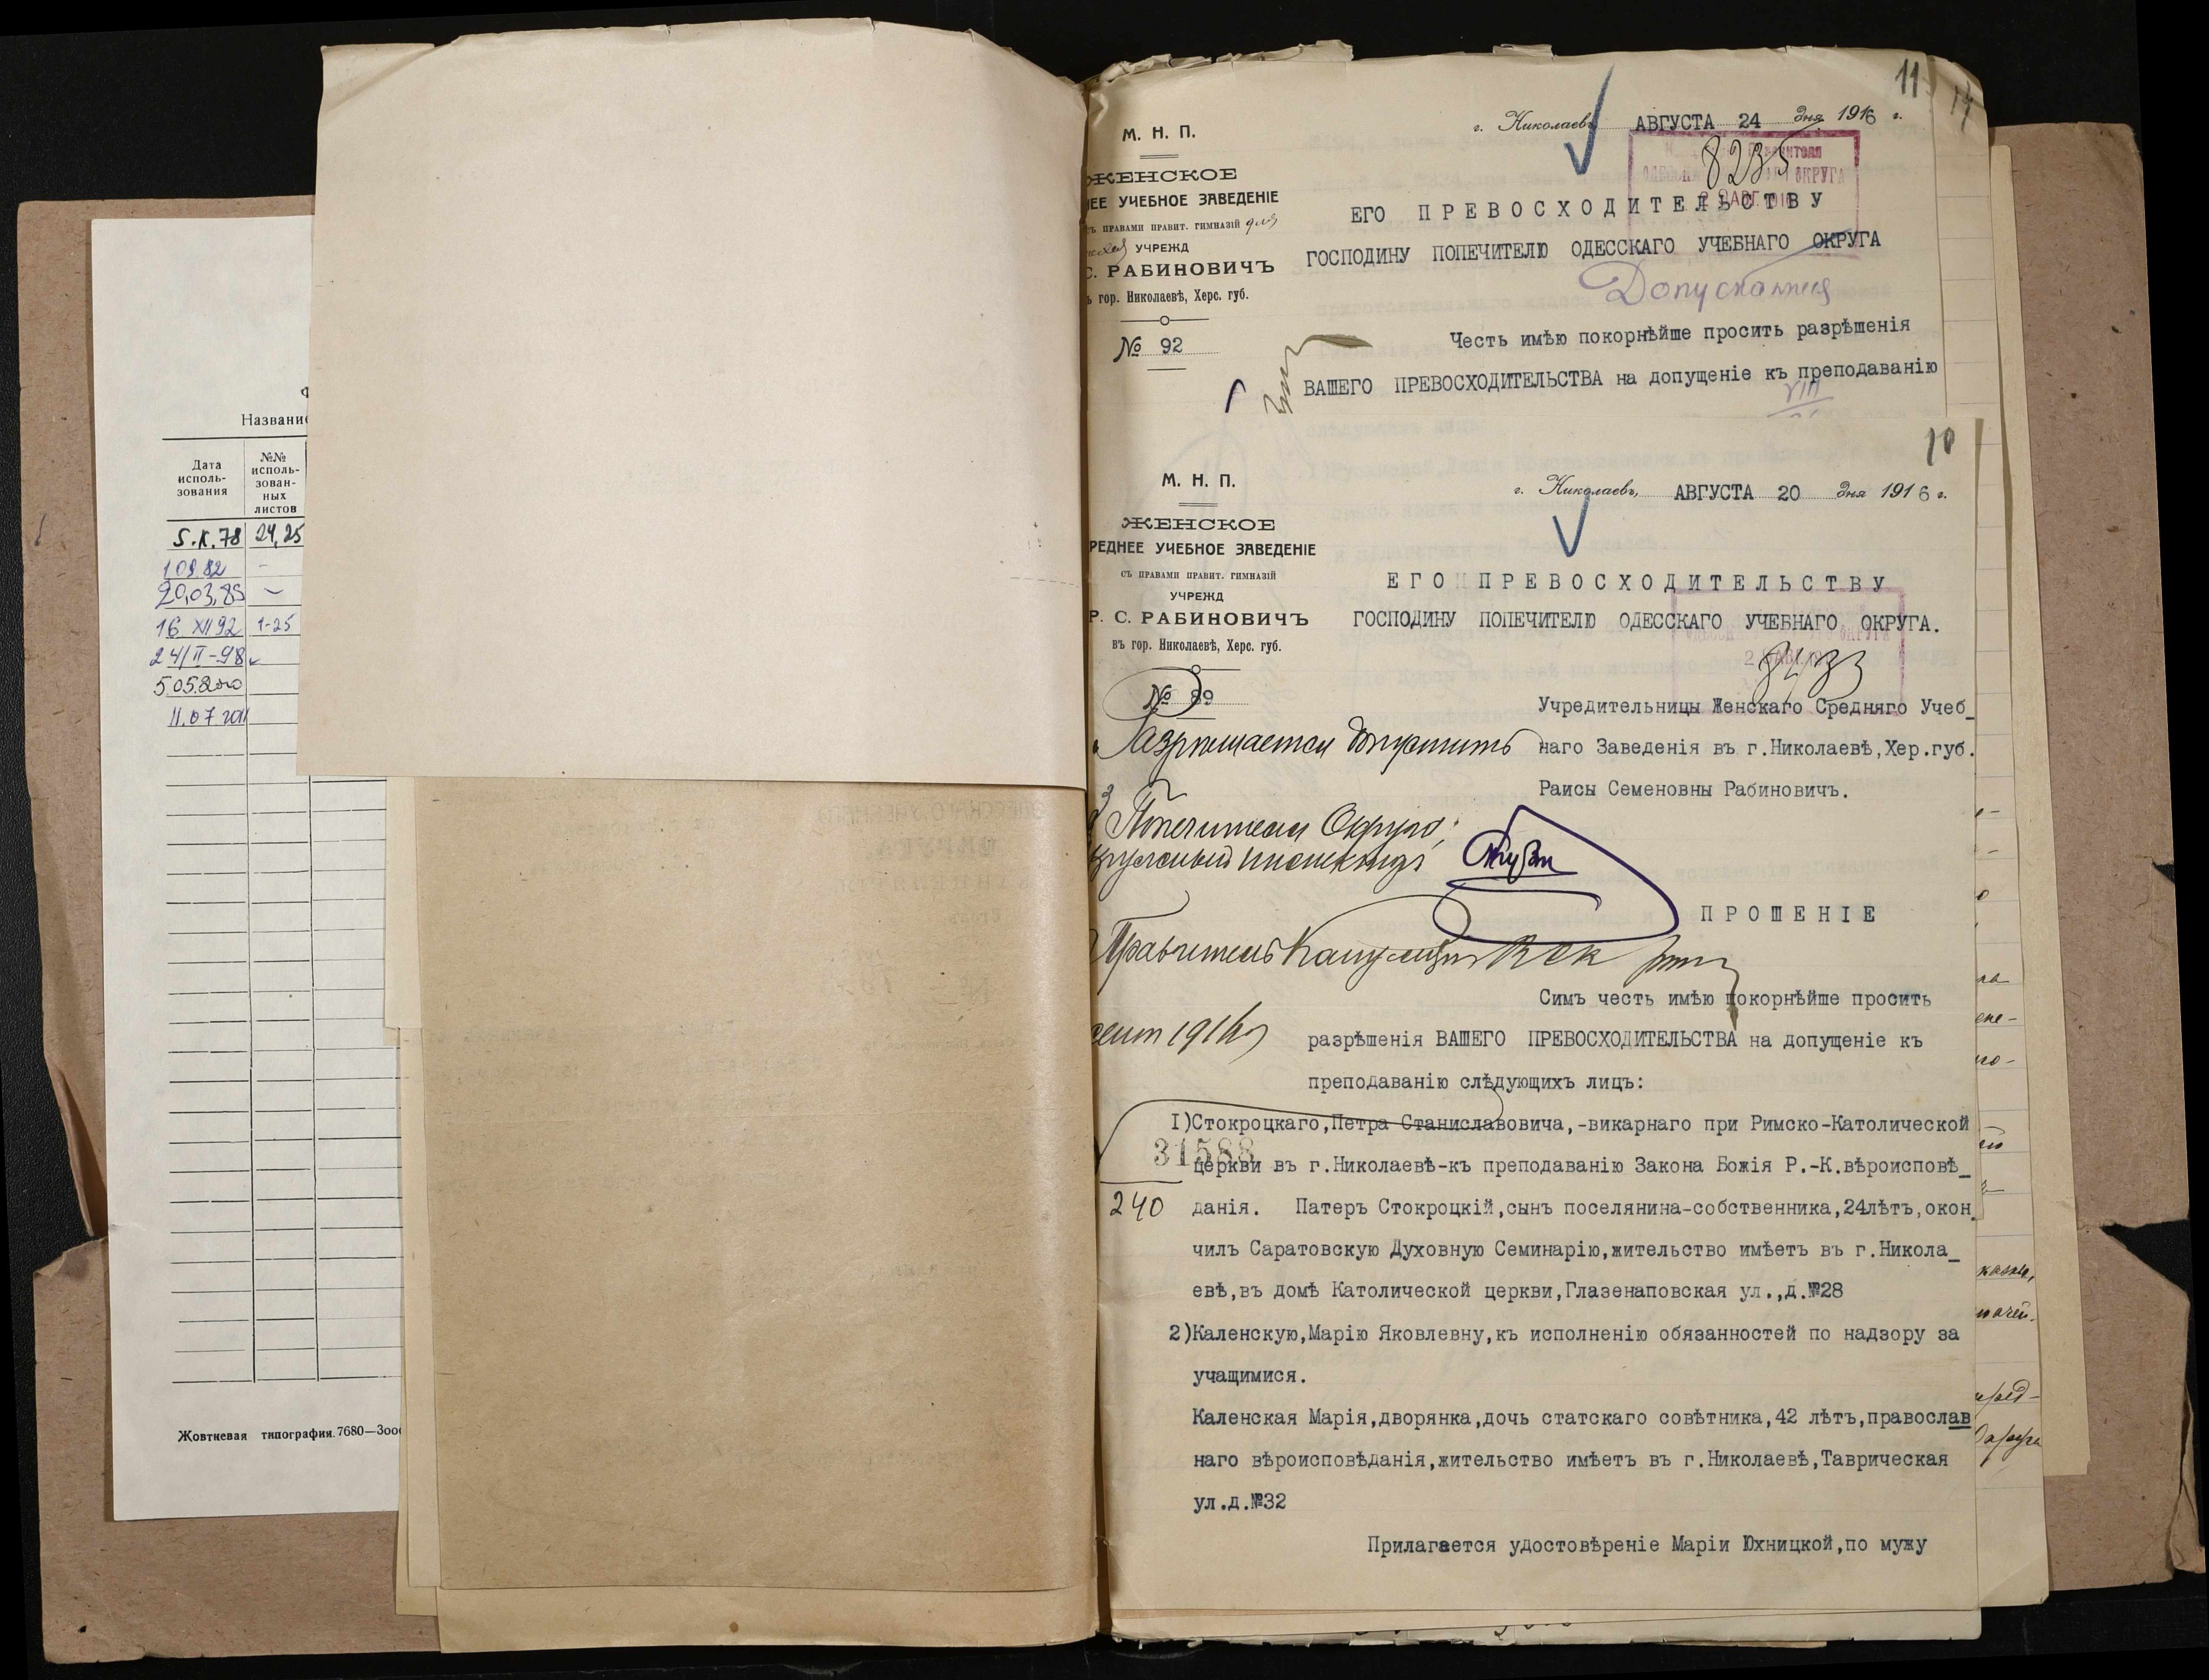 Название
Дата
исполь-
зования
№№
исполь-
зован-
ных
листов
5.X.78 24,25
20.03.85
16 XII 92 1-25
24/II-98
5.05.2000
11.07 2011
Жовтневая типография. 7680—3000
11
М. Н. П.
ЖЕНСКОЕ
НЕЕ УЧЕБНОЕ ЗАВЕДЕНІЕ
СЪ ПРАВАМИ ПРАВИТ. ГИМНАЗІЙ для
УЧРЕЖД
С. РАБИНОВИЧЪ
ъ гор. Николаевѣ, Херс. губ.
№ 92
г. Николаевъ АВГУСТА 24 дня 1916 г.
8235
ЕГО ПРЕВОСХОДИТЕЛЬСТВУ
ГОСПОДИНУ ПОПЕЧИТЕЛЮ ОДЕССКАГО УЧЕБНАГО ОКРУГА
Допускаются
Честь имѣю покорнѣйше просить разрѣшенія
ВАШЕГО ПРЕВОСХОДИТЕЛЬСТВА на допущеніе къ преподаванію
VIII
10
М. Н. П.
ЖЕНСКОЕ
РЕДНЕЕ УЧЕБНОЕ ЗАВЕДЕНІЕ
СЪ ПРАВАМИ ПРАВИТ. ГИМНАЗІЙ
УЧРЕЖД
Р. С. РАБИНОВИЧЪ
въ гор. Николаевѣ, Херс. губ.
№ 89
г. Николаевъ, АВГУСТА 20 дня 1916 г.
ЕГО ПРЕВОСХОДИТЕЛЬСТВУ
ГОСПОДИНУ ПОПЕЧИТЕЛЮ ОДЕССКАГО УЧЕБНАГО ОКРУГА.
Учредительницы Женскаго Средняго Учеб_
наго Заведенія въ г.Николаевѣ,Хер.губ.
Раисы Семеновны Рабиновичъ.
Разрѣшается допустить
Попечителя Округа,
Окружный инспекторъ
ПРОШЕНІЕ
Правитель Канцеляріи
сент 1916
Симъ честь имѣю покорнѣйше просить
разрѣшенія ВАШЕГО ПРЕВОСХОДИТЕЛЬСТВА на допущеніе къ
преподаванію слѣдующихъ лицъ:
I)Стокроцкаго,Петра Станиславовича,-викарнаго при Римско-Католической
31588
церкви въ г.Николаевѣ-къ преподаванію Закона Божія Р.-К.вѣроисповѣ_
240
данія. Патеръ Стокроцкій,сынъ поселянина-собственника,24лѣтъ,окон_
чилъ Саратовскую Духовную Семинарію,жительство имѣетъ въ г.Никола_
евѣ,въ домѣ Католической церкви,Глазенаповская ул.,д.№28
2)Каленскую,Марію Яковлевну,къ исполненію обязанностей по надзору за
учащимися.
Каленская Марія,дворянка,дочь статскаго совѣтника,42 лѣтъ,православ
наго вѣроисповѣданія,жительство имѣетъ въ г.Николаевѣ,Таврическая
ул.д.№32
Прилагается удостовѣреніе Маріи Юхницкой,по мужу